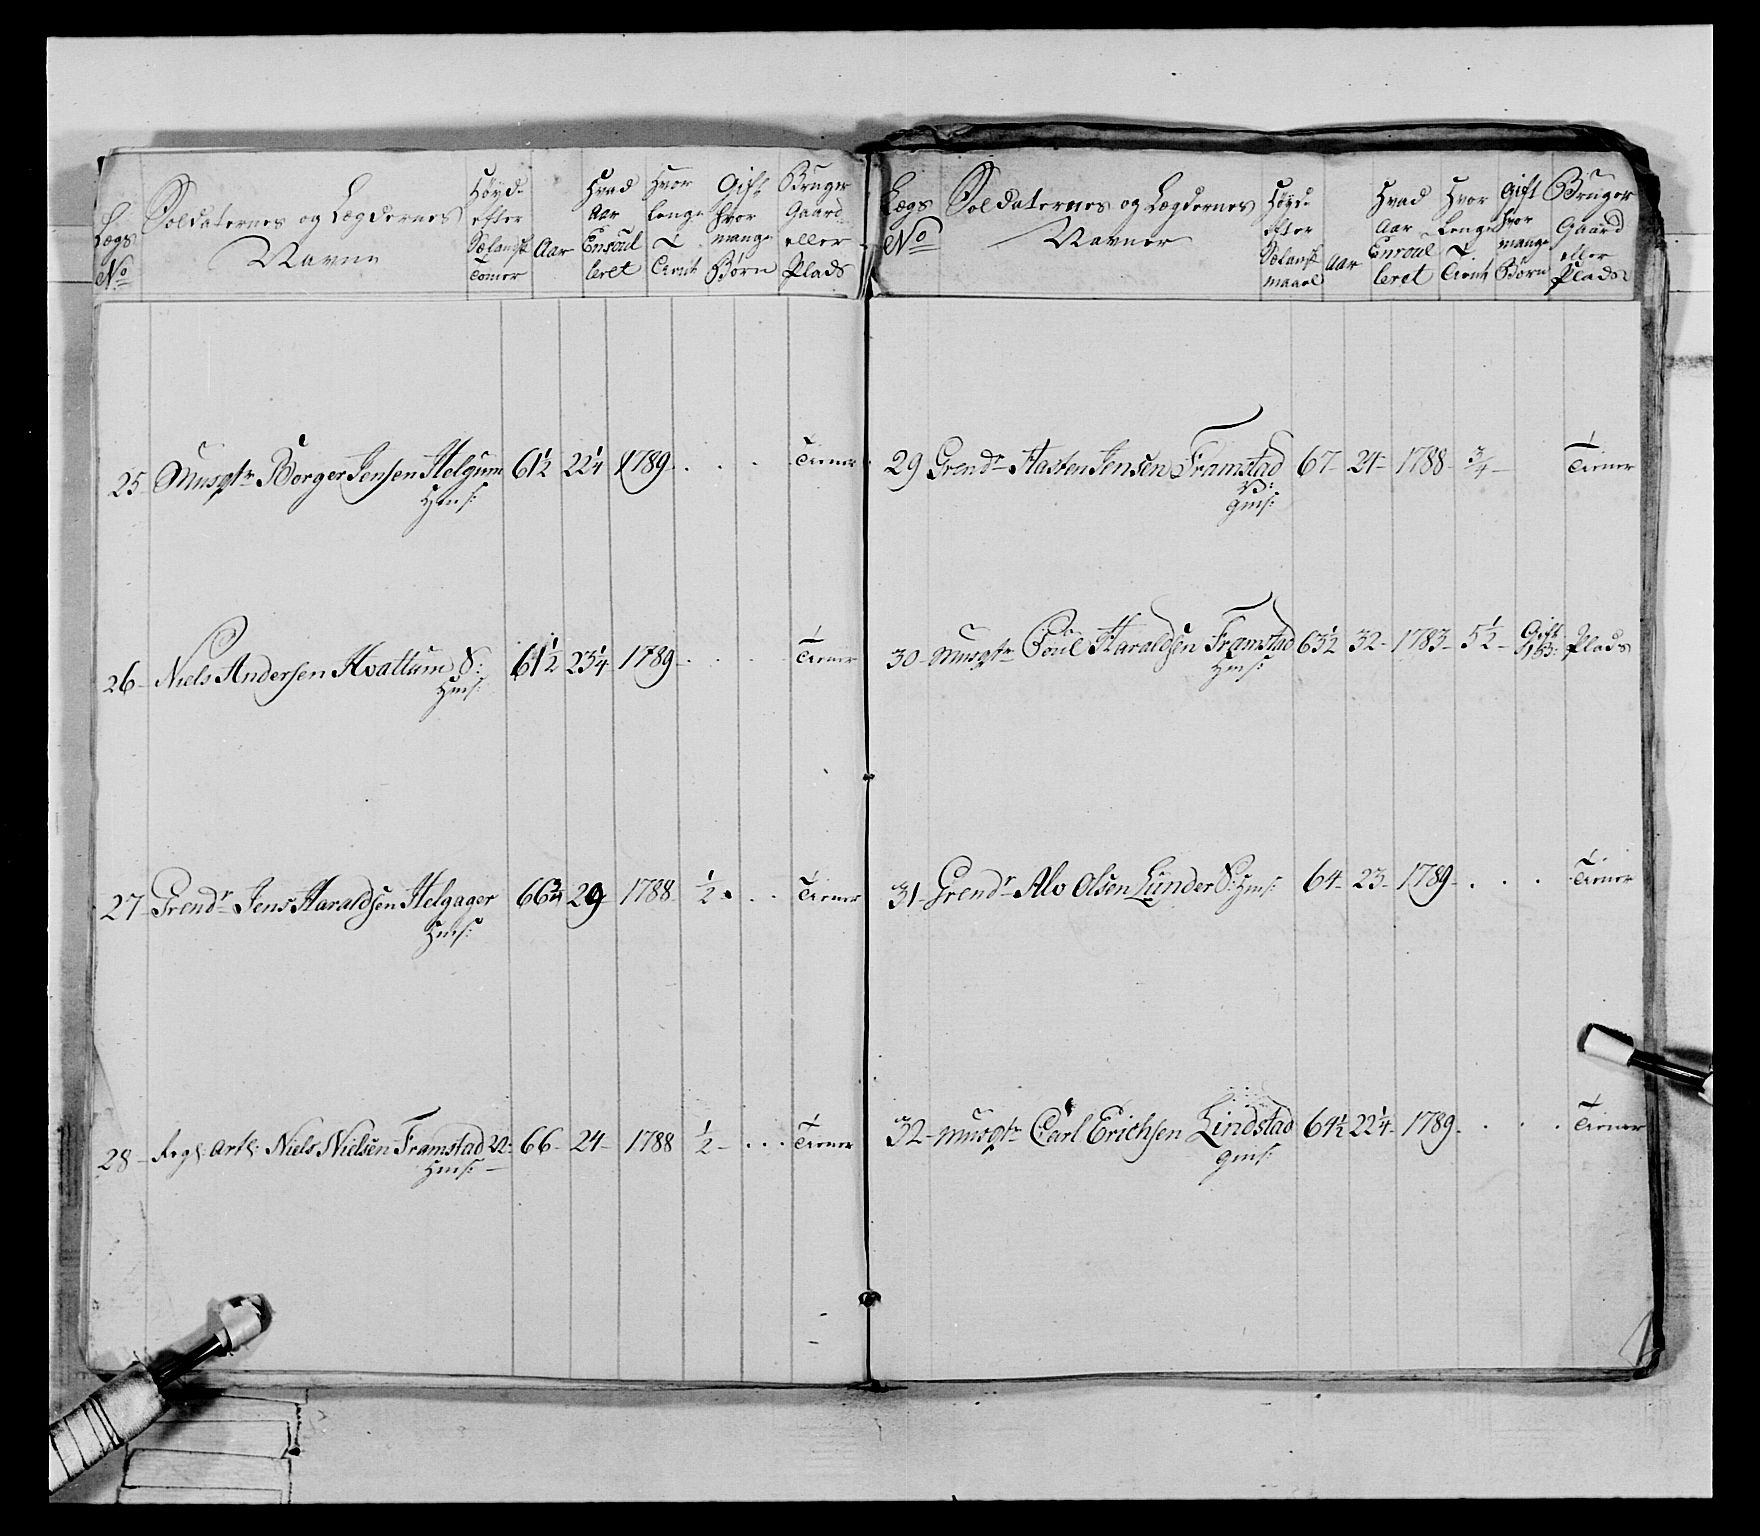 Lægs No
Soldaternes og Lægdernes Navne
Høyde efter Sælansk Tomer
Aar
Hvad Aar Enroulleret
Hvor lenge Tient
Gift hvor mange Børn
Bruger Gaard eller Plads
25 - Musqtr Borger Jensen Helgum 61½ 22¼ 1789 - . . . Tiener
Hms:
26 - Niels Andersen Hvattum S: 61½ 23¼ 1789 - . . . Tiener
Hms:
27 - Grendr Jens Haraldsen Helgager 66¾ 29 1788 ½ . . . Tiener
Hms:
28 - Regl: Artl: Niels Nielsen Framstad 66 - 24 - 1788 ½ - . . . Tiener
Hms:
Lægs No
Soldaternes og Lægdernes Navner
Høyde efter Sælansk maael
Aar
Hvad Aar Enroulleret
Hvor Lenge Tient
Gift hvor mange Børn
Bruger Gaard eller Plads
29 Grendr Hasten Jensen Framstad 67 - 24 - 1788 - ¾ - Tiener
Gms:
30 - Musqtr Poul Haraldsen Framstad 63½ 32 - 1783 - 5½ - Gift Plads
Hms:
31 - Grendr Alv Olsen Lunder S: Hms: 64 - 23 - 1789 - . . . Tiener
32 - Musqtr Carl Erichsen Lindstad 64½ 22¼ - 1789 . . . . Tiener
Gms: